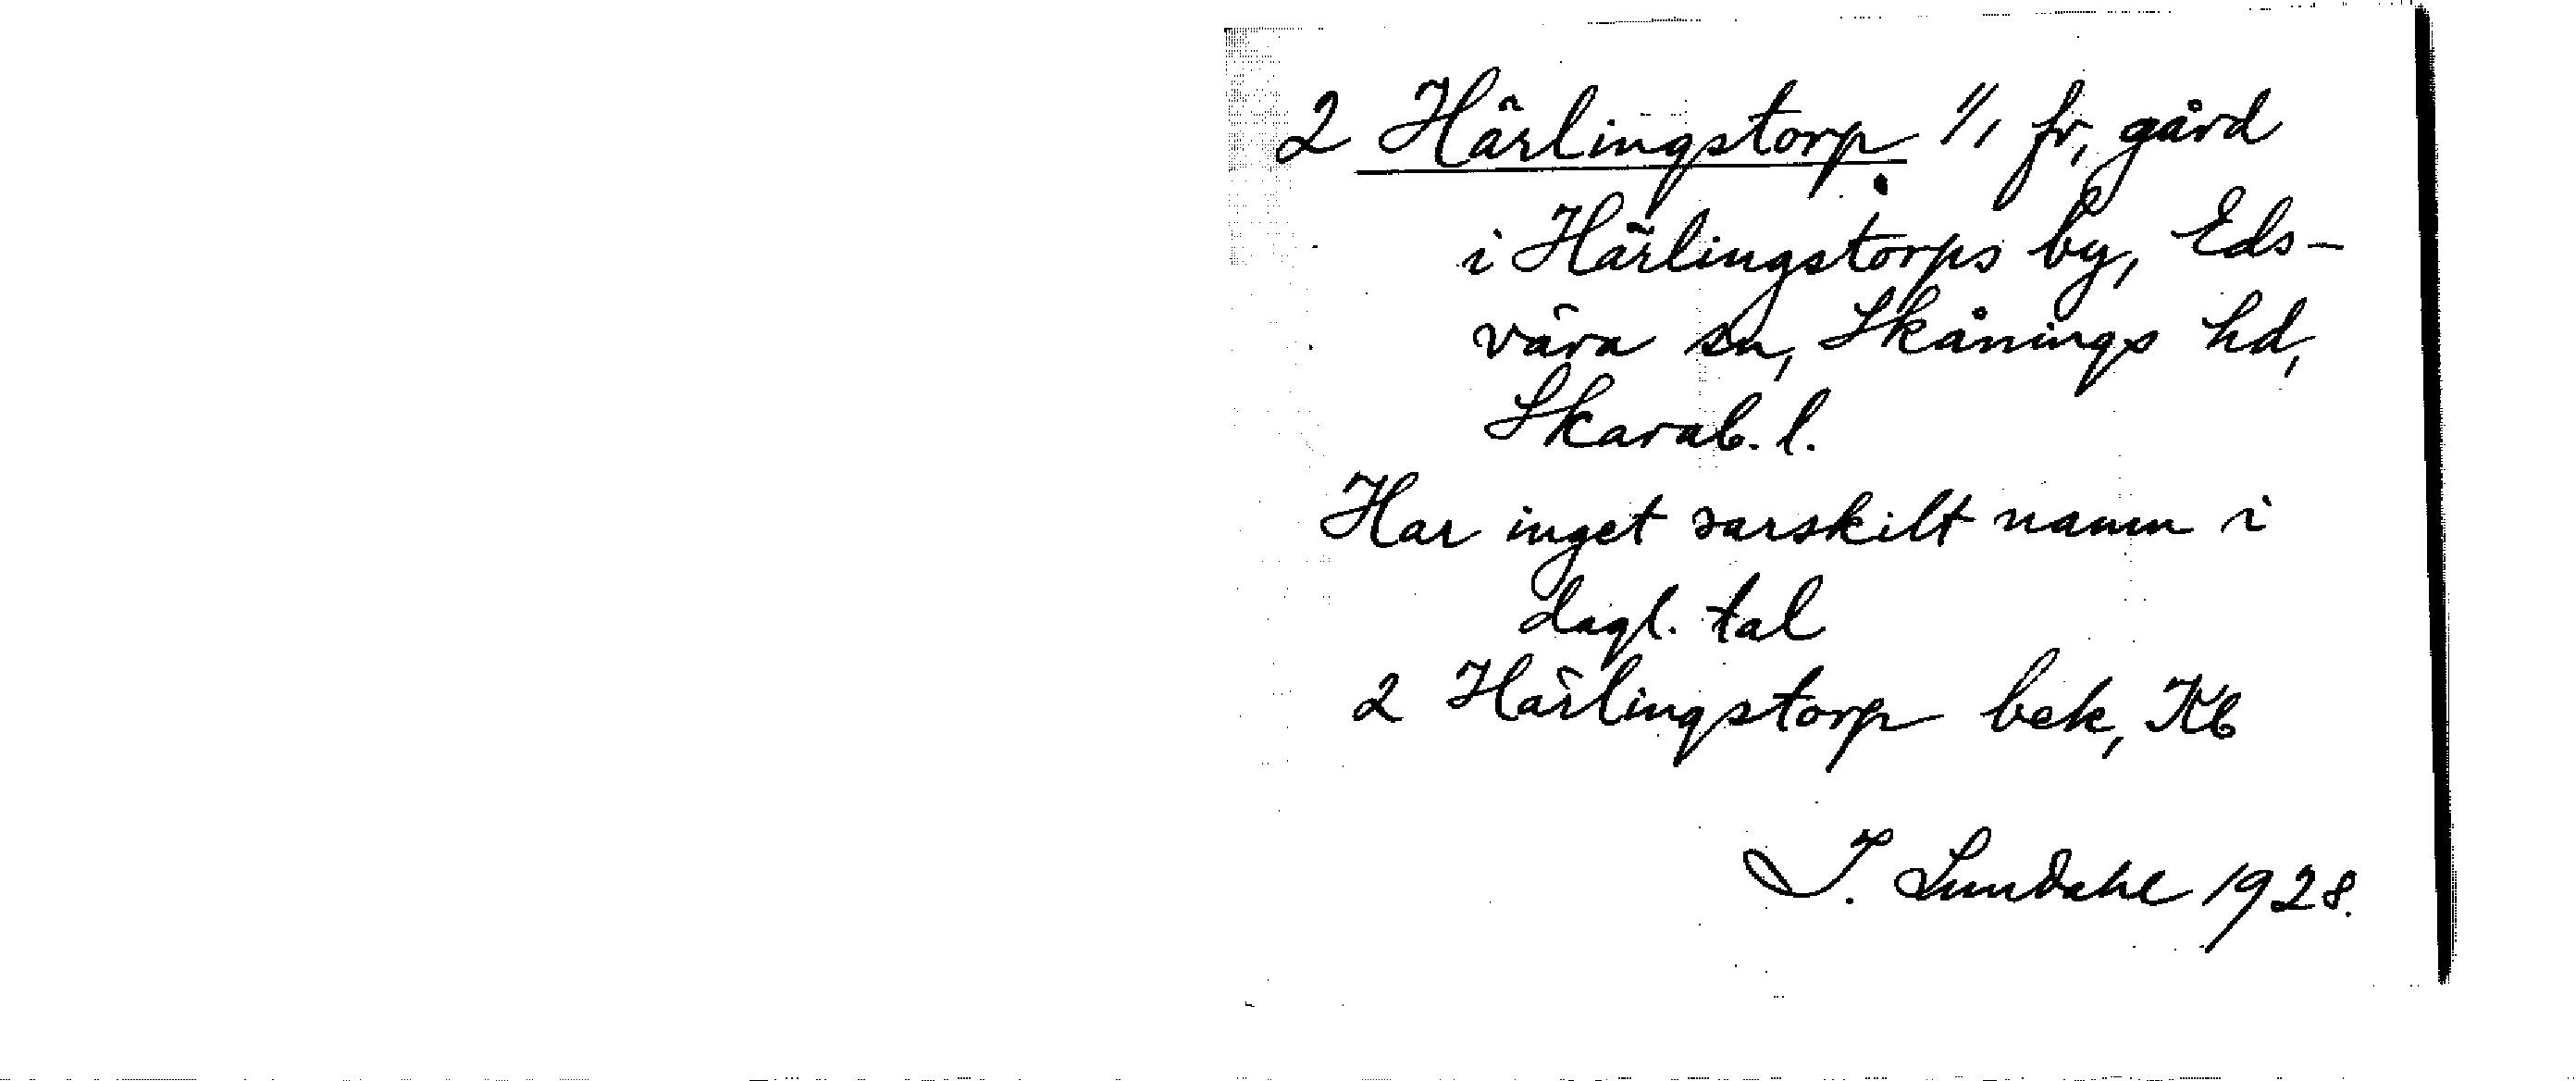 2 Härlingstorp 1/1 fr, gård
i Härlingstorps by, Eds-
vära sn, Skånings hd,
Skarab. l.
Har inget sarskilt namn i
dagl. tal
2 Härlingstorp bek, Kb
I. Lundahl 1928.